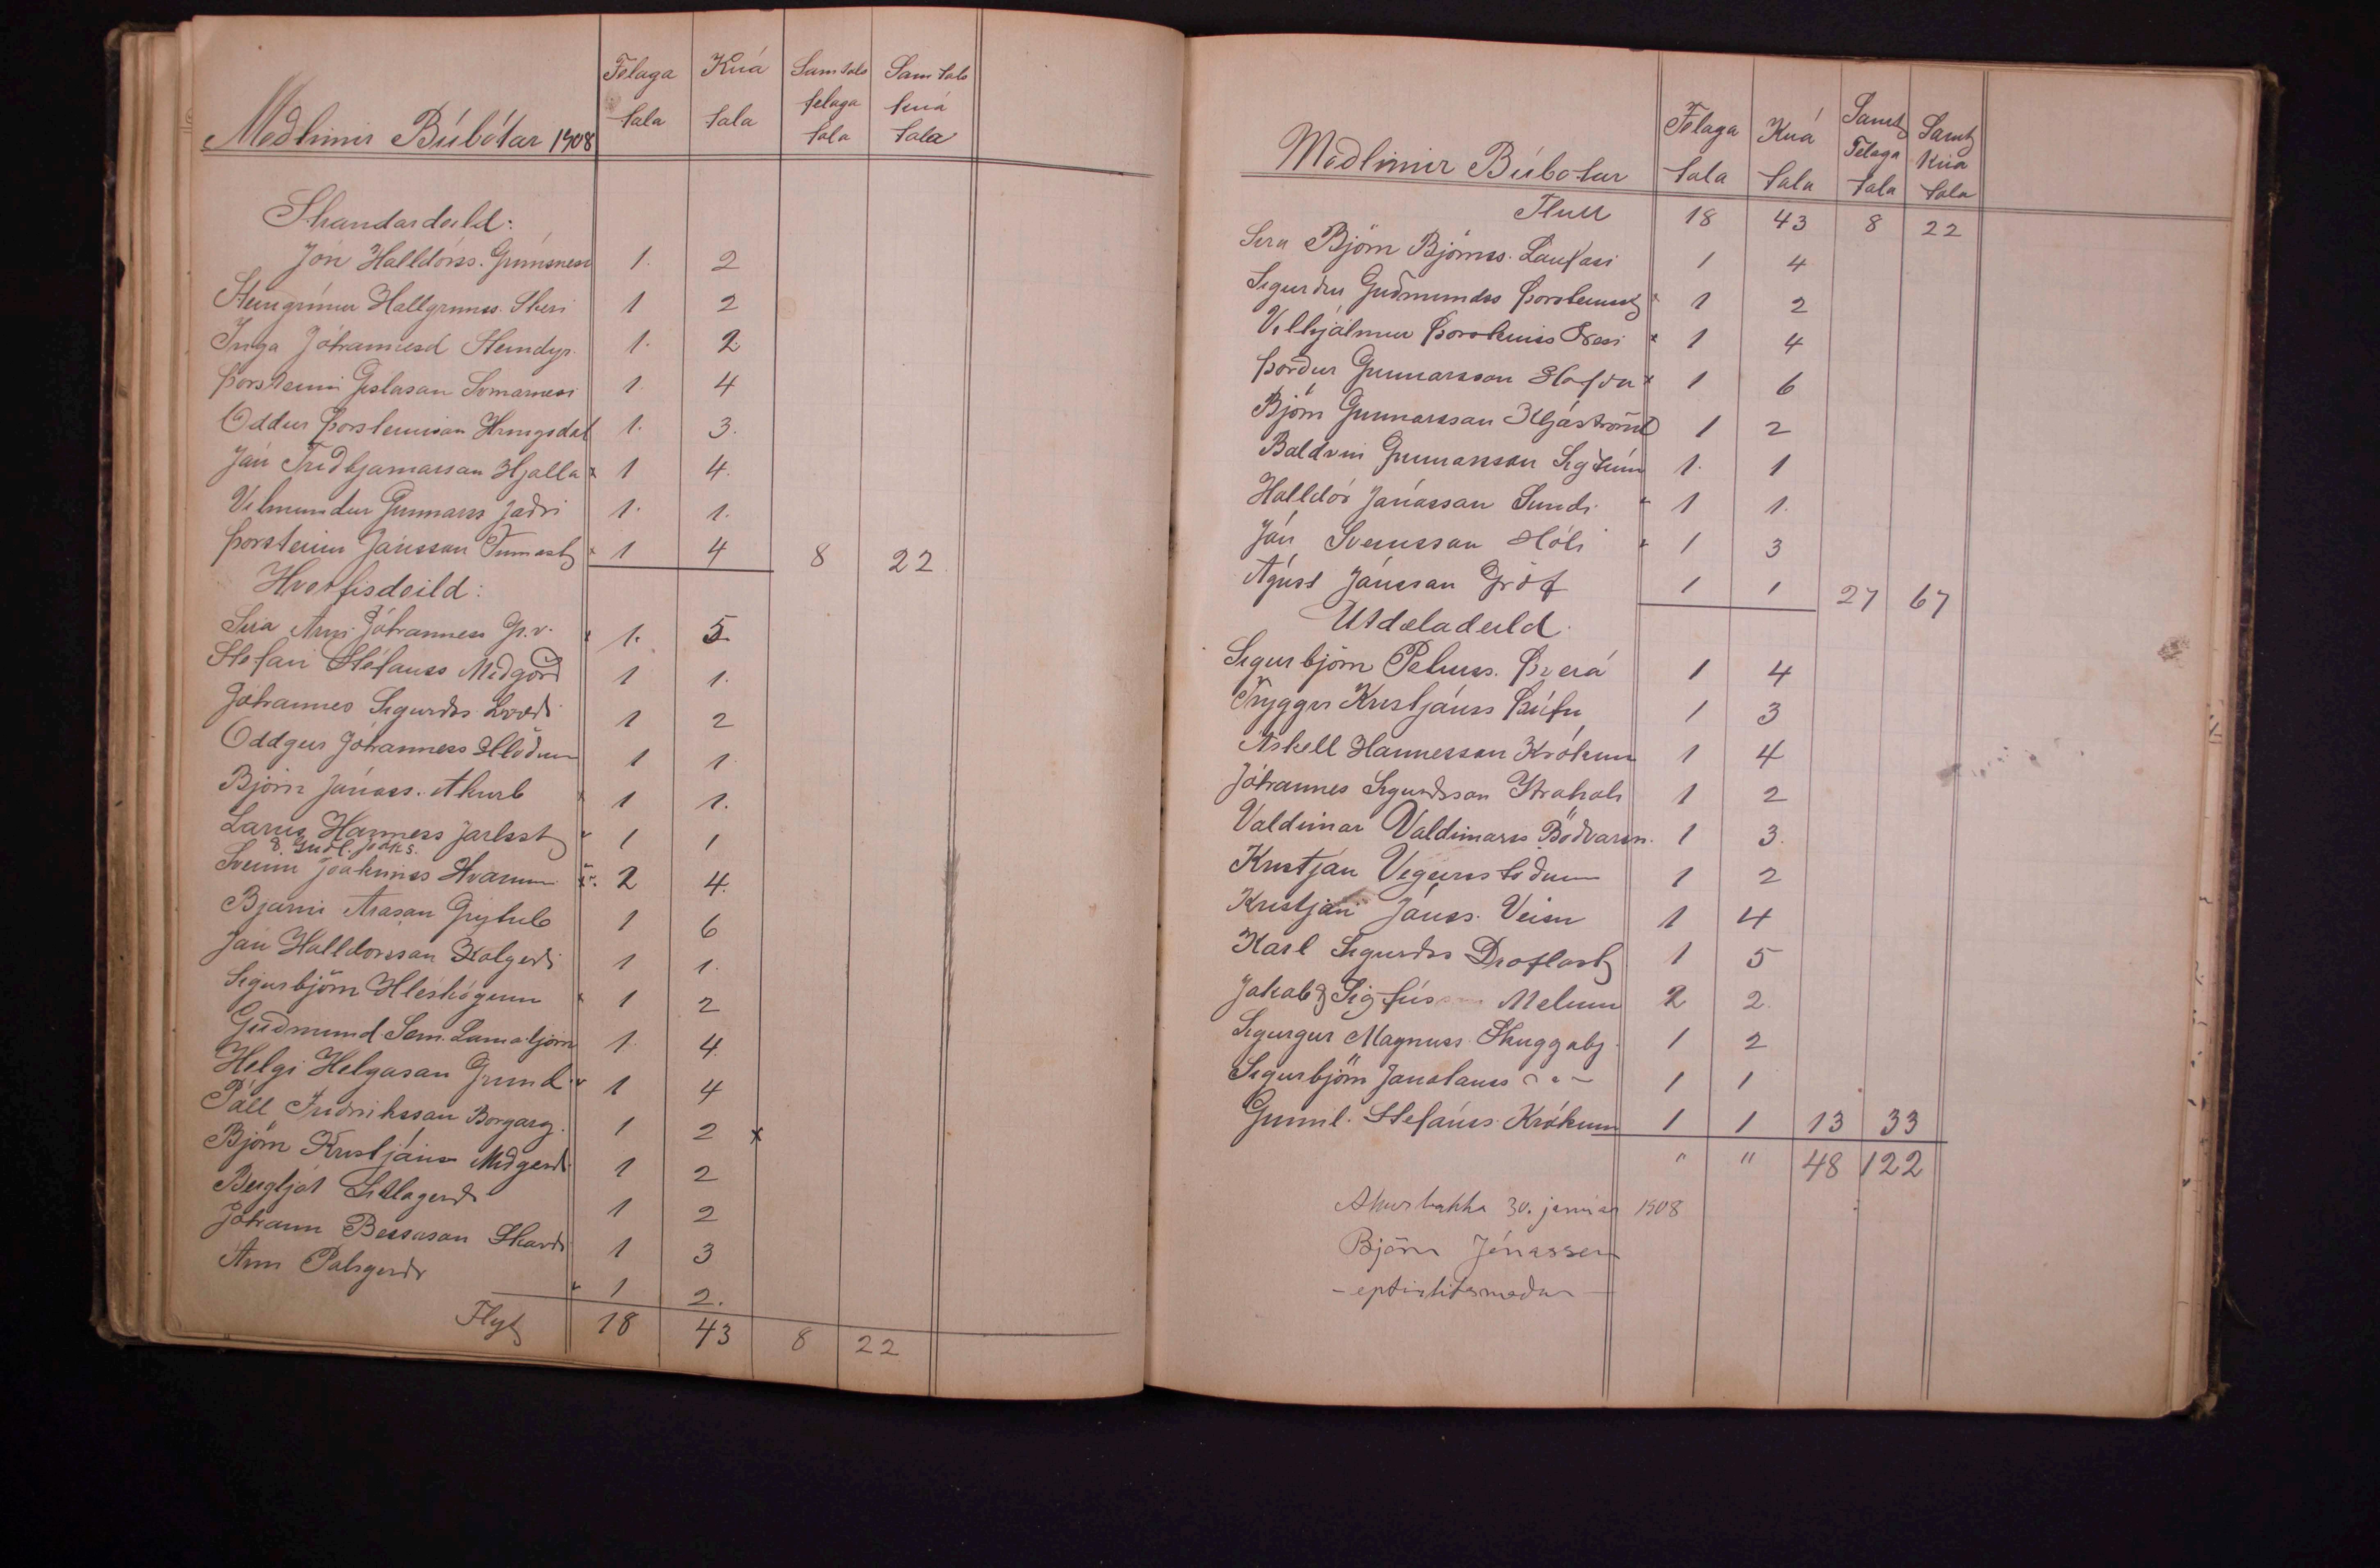 Felaga Kúa Samtals Samtals
felaga kúa
Meðlimir Búbótar 1908 tala tala tala tala
Skandardeild:
Jón Halldórss. Grímsnesi 1. 2
Steingrímur Hallgrímss. Skeri 1 2
Inga Jóhannesd Steindyr. 1. 2
Þorsteinn Gíslason Svínarnesi 1. 4
Oddur Þorsteinsson Hringsdal 1. 3.
Jón Friðbjarnarson Hjalla x 1 4.
Vilmundur Gunnarss Jaðri 1. 1.
Þorsteinn Jónsson Finnast x 1 4 8 22
Hverfisdeild:
Séra Árni Jóhanness Gr.v. x 1. 5
Stefán Stefánss Miðgörð 1 1.
Jóhannes Sigurðss 1 2
Oddgeir Jóhanness Hlöðum 1 1.
Björn Jónass. Akurb x 1 1.
Lárus Hanness Jarlsst x 1 1
& Guðl. Joaks.
Sveinn Jóakimss Hvammi 2 4.
Bjarni Arason Grýtub 1 6
Jón Halldórsson Kolgerði 1 1.
Sigurbjörn Hléskógum x 1 2
Guðmund Sæm. Lómatjörn 1. 4.
Helgi Helgason Grund x 1 4
Páll Friðriksson Borgarg. 1 2 x
Björn Kristjánss Miðgerði 1 2
Bergljót Litlagerði 1 2
Jóhann Bessason Skarði 1 3
Árni Pálsgerði x 1 2.
Flyt 18 43 8 22
Felaga Kúa Samt Samt
Felaga Kúa
Meðlimir Búbótar tala tala tala tala
Flutt 18 43 8 22
Séra Björn Björnss. Laufási 1 4
Sigurður Guðmundss Þorsteinsst x 1 2
Vilhjálmur Þorsteinss Nesi x 1 4
Þórður Gunnarsson Höfða x 1 6
Björn Gunnarsson 1 2
Baldvin Gunnarsson Sigtúnum 1. 1
Halldór Jónasson Sundi x 1 1.
Jón Sveinsson Hóli x 1 3
Ágúst Jónsson Gröf 1 1 27 67
Útdæladeild.
Sigurbjörn Péturss. Þverá 1 4
Tryggvi Kristjánss Þúfu 1 3
Áskell Hannesson Krókum 1 4
Jóhannes Sigurðsson 1 2
Valdimar Valdimarss Böðvarsn. 1 3.
Kristján Végeirsstöðum 1 2
Kristján Jónss. Veisu 1 4
Karl Sigurðss Draflast 1 5
Jakob & Sigfús Melum 2 2
Sigurgeir Magnúss. Skuggabj. 1 2
Sigurbjörn 1 1
Gunnl. Stefánss. Krókum 1 1 13 33
" " 48 122
Akurbakka 30. janúar 1908
Björn Jónasson
- eptirlitsmaður -